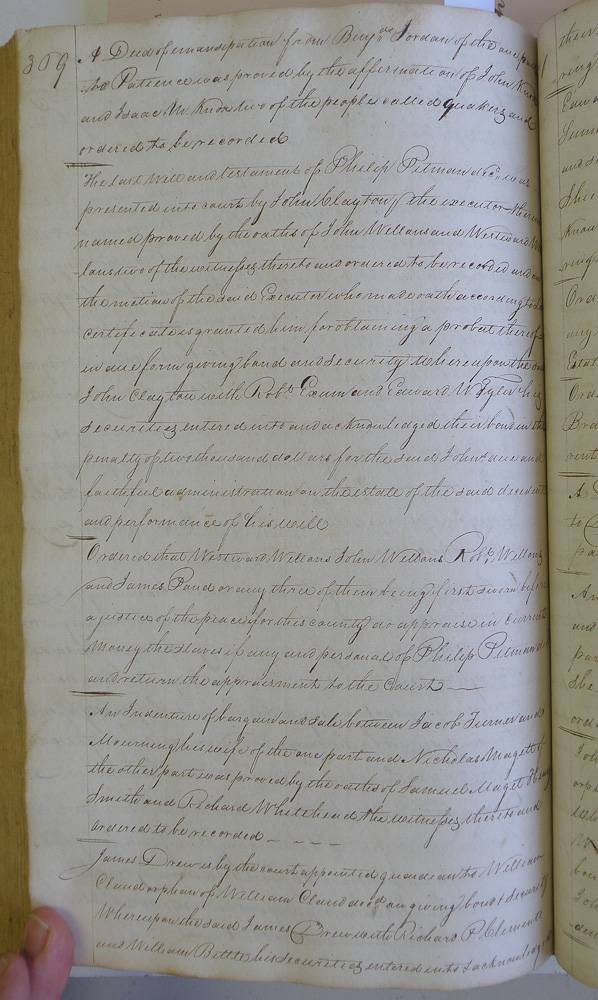 309
A Deed of emansipation from Benjn. Jordan of the one part
to Patience was proved by the affirmation of John
and Isaac M. Knox two of the people called quakers and
ordered to be recorded
The last Will and testament of Philip Pitman decd. was
presented into court by John Clayton the executor therein
named proved by the oaths of John Wellons and Westward
lons two of the witnesses thereto and ordered to be recorded and on
the motion of the said Executor who made oath according to
certificate is granted him for obtaining a probat thereof
in due form giving bond and security Whereupon the
John Clayton with Robt. Exum and Edward W. Tyler his
securities entered into and acknowledged their bond in the
penalty of two thousand dollars for the said Johns due and
faithful administration on the estate of the said decedent
and performance of his will
Ordered that Westward Wellons John Wellons Robt. Wellons
and James Pond or any three of them being first sworn before
a justice of the peace for this county do appraise in current
Money the slaves if any and personal of Philip Pitman
and return the appraisment to the Court
An Indenture of bargain and sale between Jacob Turner and
Mourning his wife of the one part and Nicholas Magett of
the other part was proved by the oaths of Samuel Maget
Smith and Richard Whitehead the witnesses thereto and
ordered to be recorded
James Drew is by the court appointed guardean to William
Claud orphan of William Claud decd on giving bond & Security
Whereupon the said James Drew with Richard P. Clements
and William Bittle his Securities entered into & acknowledged